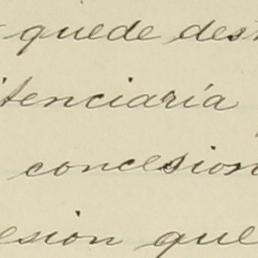 quede des
itenciaría
concesion
esion que